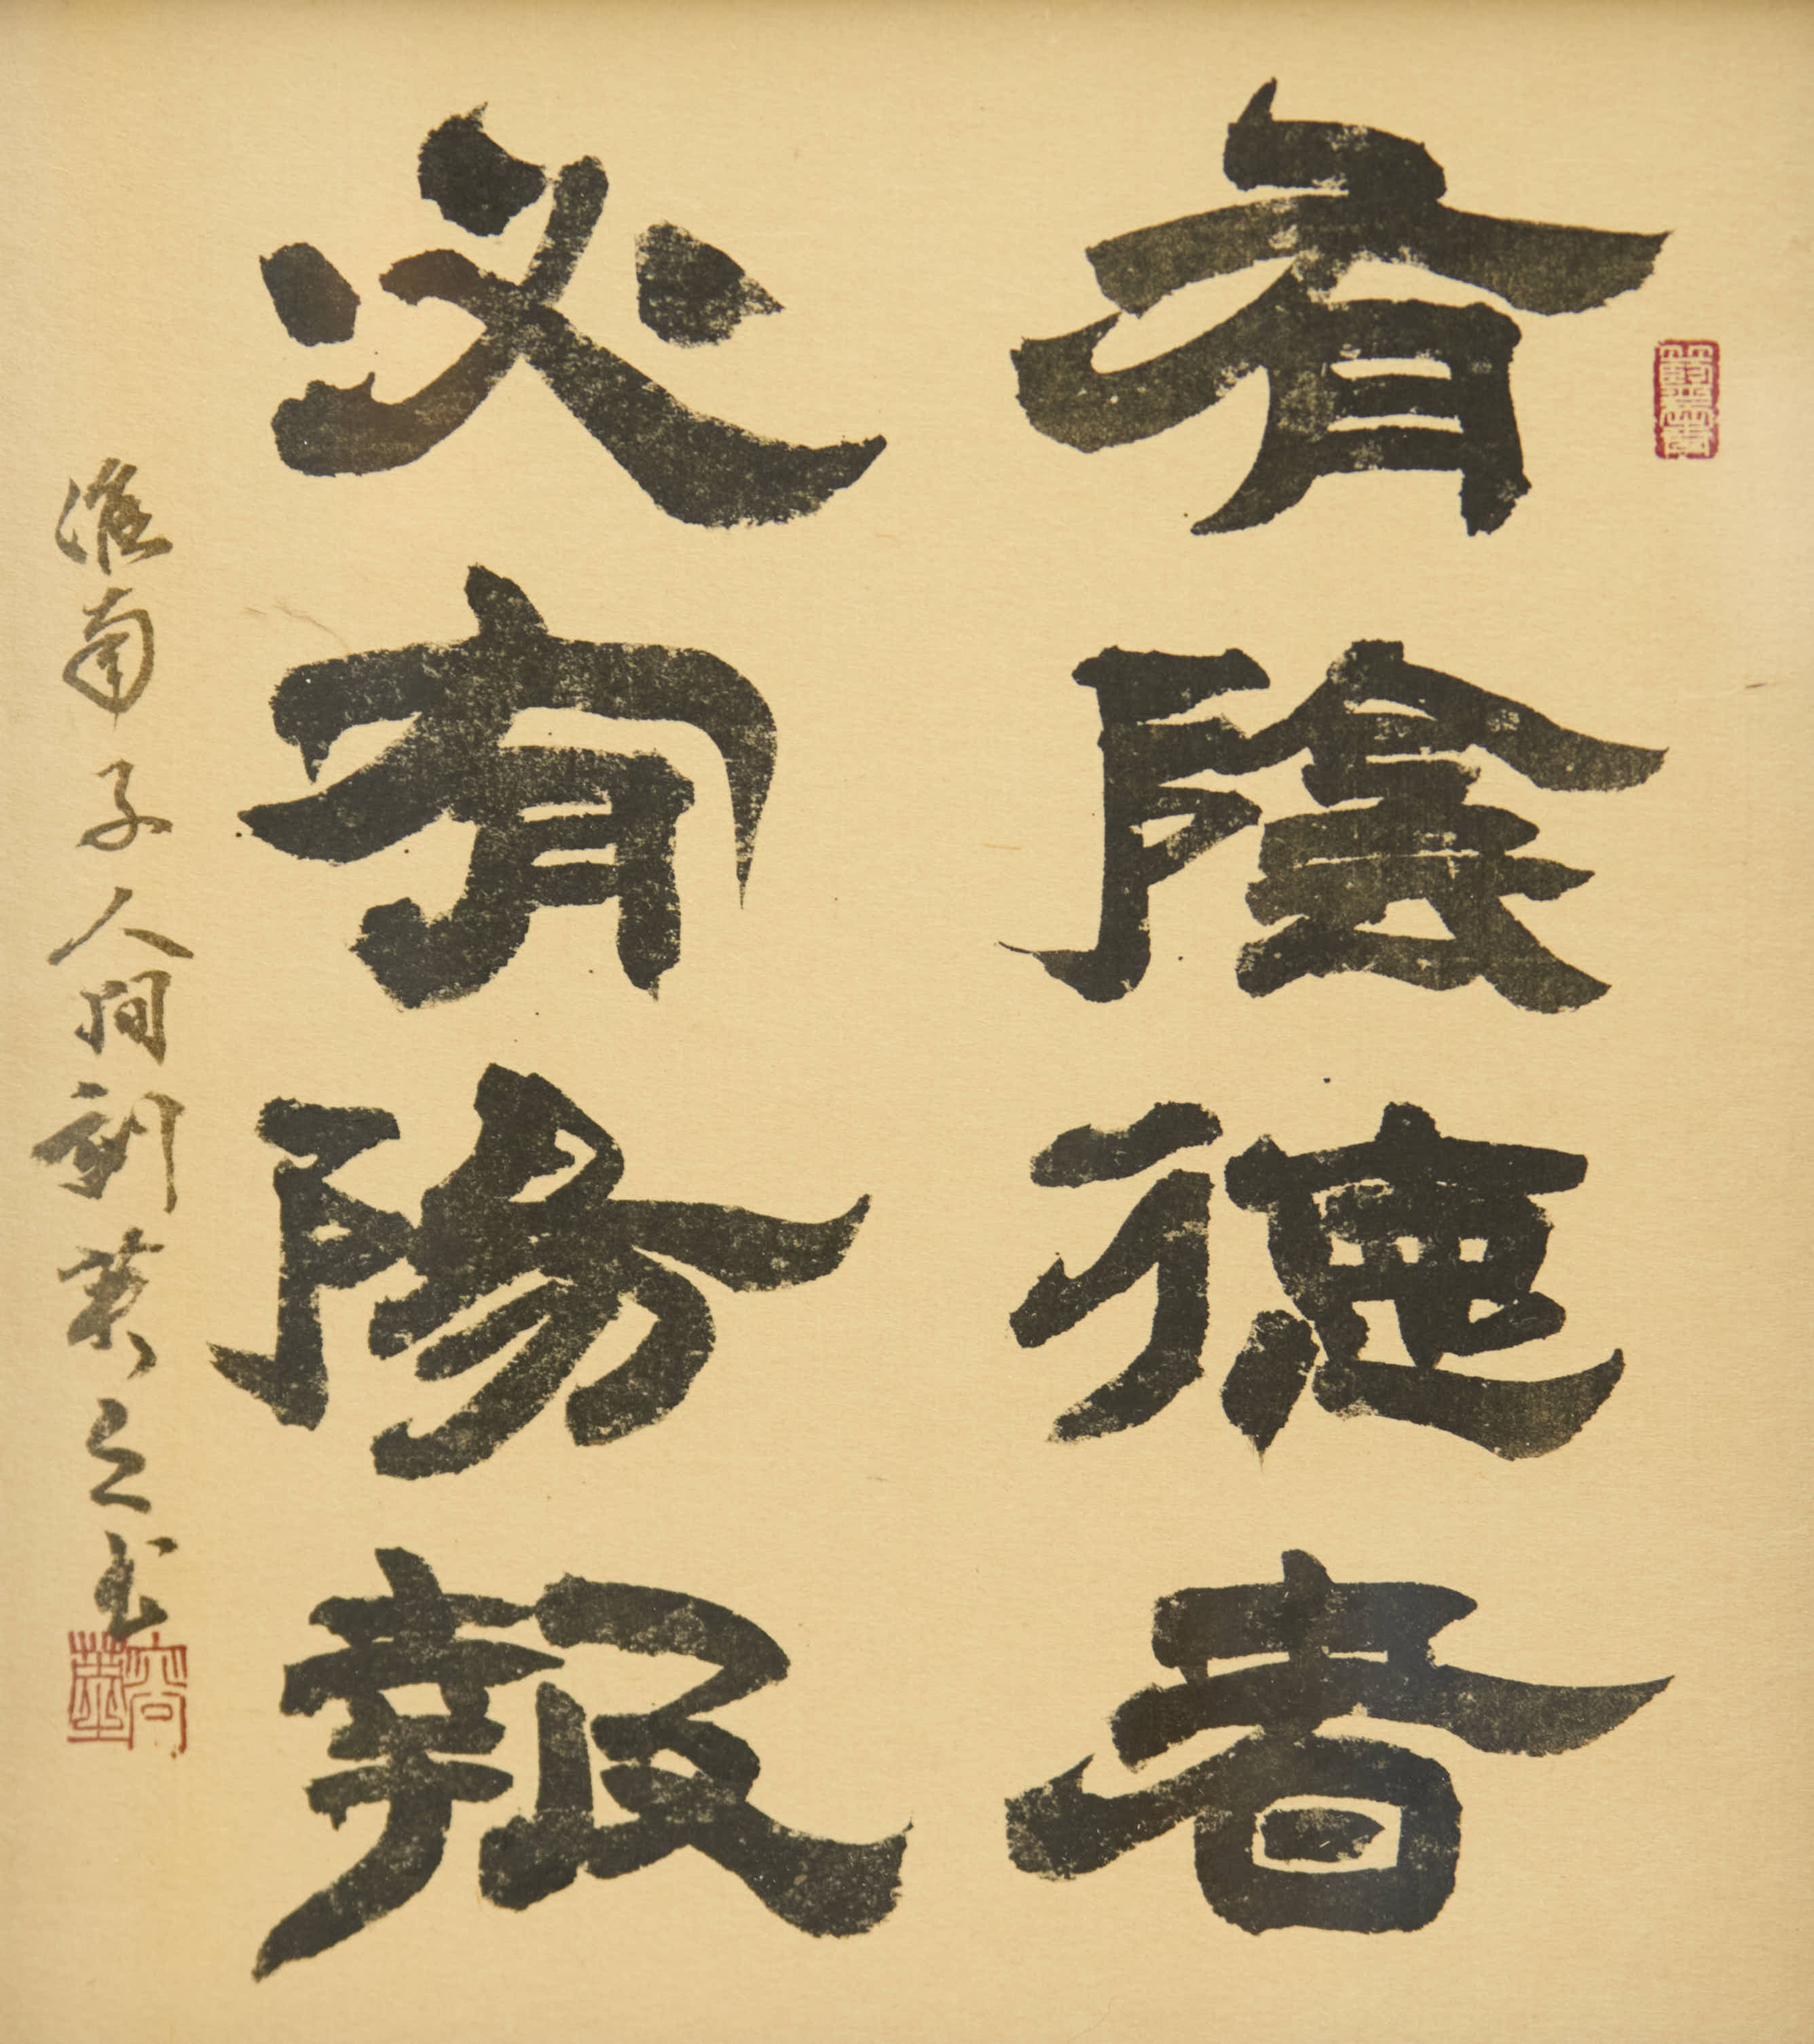 有陰德者
必有陽報
淮南子人间訓 葉之书